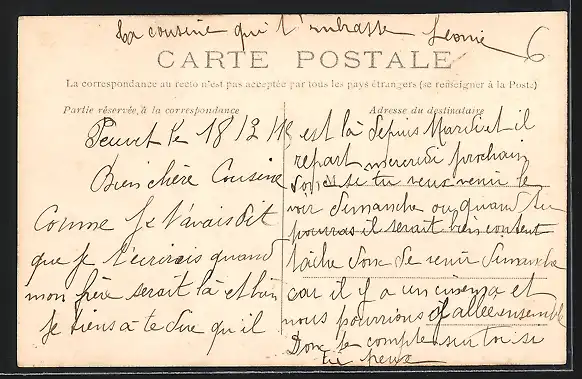 La cousine qui t'embrasse Leonie
6
CARTE POSTALE
La correspondance au recto n'est pas acceptée par tous les pays étrangers (se renseigner à la Poste)
Partie réservée à la correspondance
le 18/3/
Bien chère Cousine
Comme Je t'avais dit
que Je t'écrirais quand
mon frère serait là et bien
Je tiens a te dire qu'il
Adresse du destinataire
est là depuis Mardi et il
repart mercredi prochain
donc si tu veux venir le
voir dimanche ou quand tu
pourras il serait bien content
tâche donc de venir dimanche
car il y a un cinema et
nous pourrions y allee ensemble
Donc Je compte sur toi si
tu peux